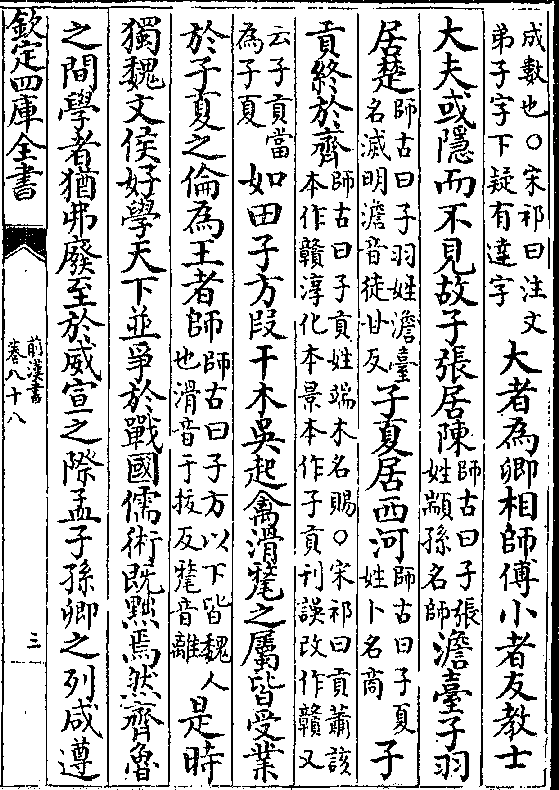 成數也○宋祁曰注文
弟子字下疑有達字
大者為卿相師傅小者友教士
大夫或隱而不見故子張居陳
師古曰子張
姓顓孫名師
澹臺子羽
居楚
師古曰子羽姓澹臺
名滅明澹音徒甘反
子夏居西河
師古曰子夏
姓卜名商
子
貢終於齊
師古曰子貢姓端木名賜○宋祁曰貢蕭該
本作贛淳化本景本作子貢刊誤改作贛又
云子貢當
為子夏
如田子方段干木吳起禽滑氂之屬皆受業
於子夏之倫為王者師
師古曰子方以下皆魏人
也滑音于拔反氂音離
是時
獨魏文侯好學天下並爭於戰國儒術既黜焉然齊魯
之間學者猶弗廢至於威宣之際孟子孫卿之列咸遵
欽定四庫全書
前漢書
卷八十八
三